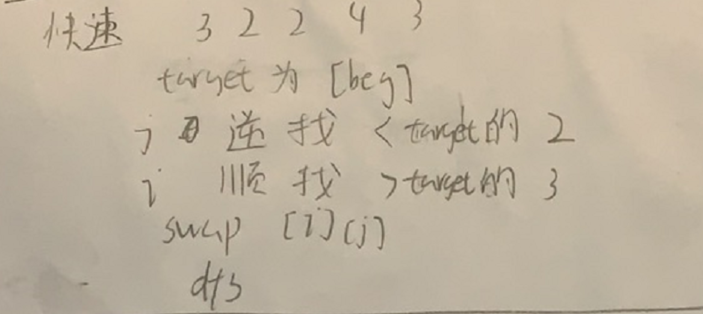 快速 3 2 2 4 3
target 为 [beg]
j 逆找 < target的 2
i 顺找 > target的 3
swap [i][j]
dfs